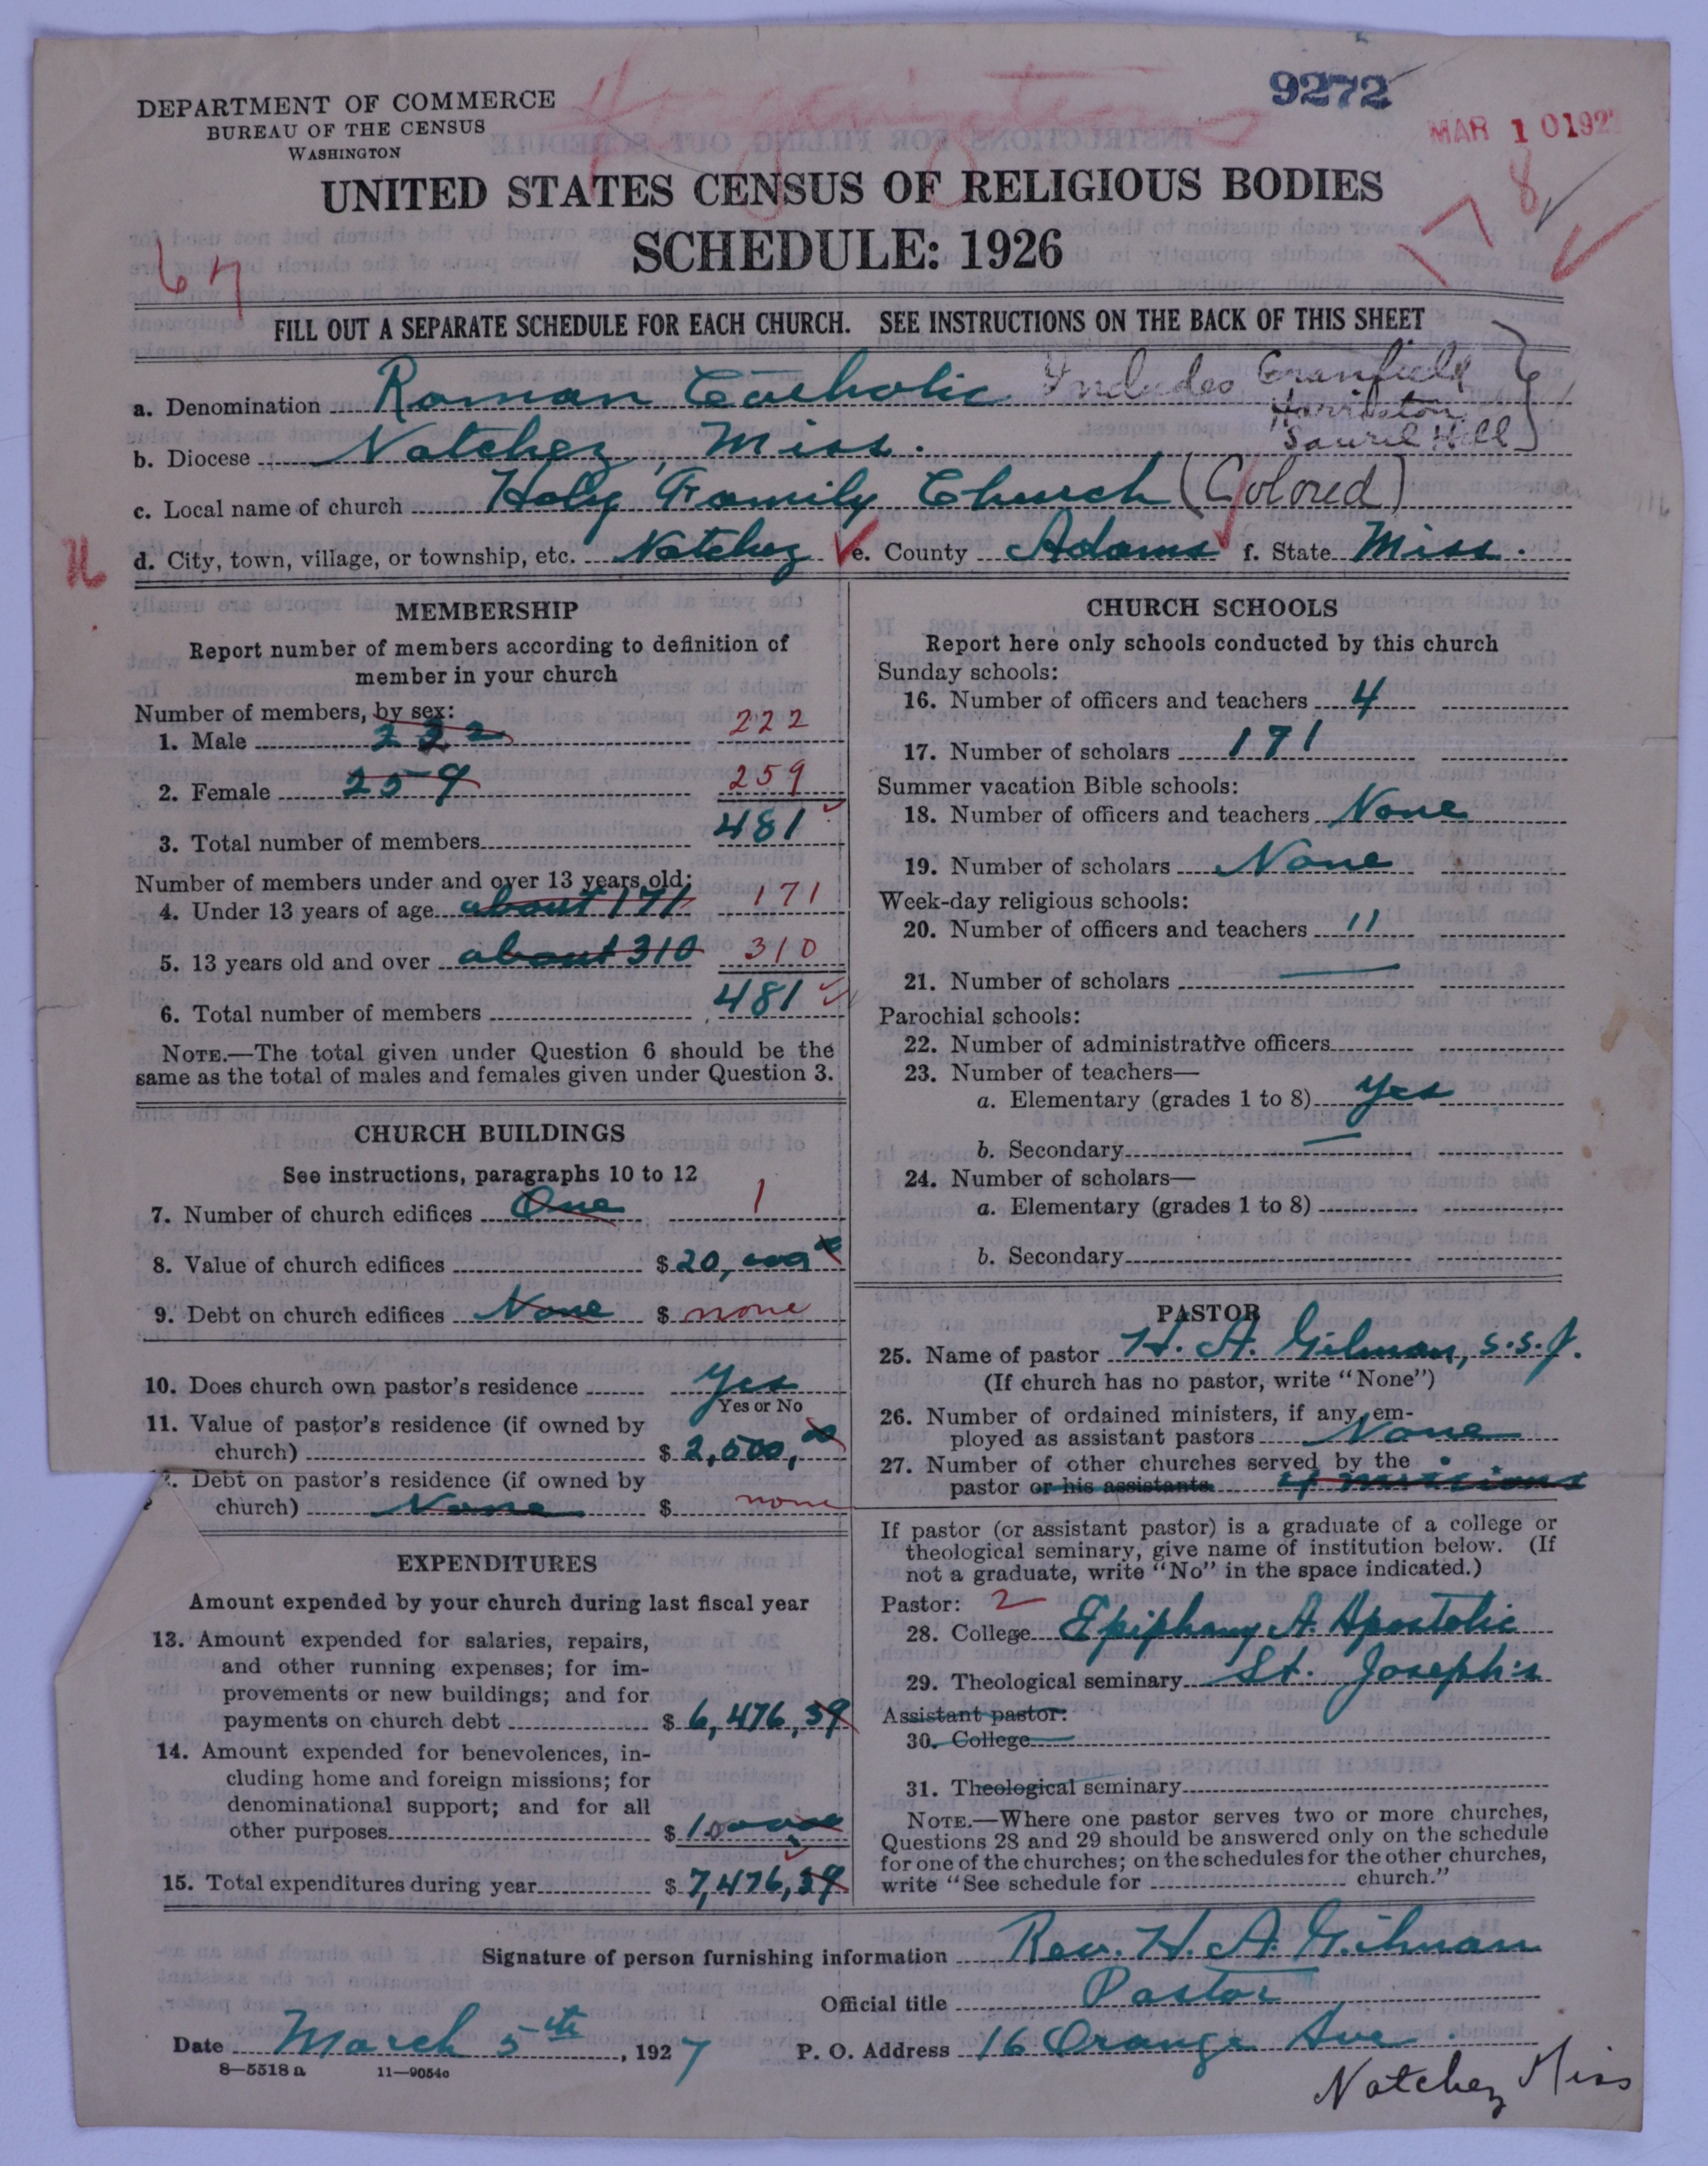 9272
MAR 10 192
DEPARTMENT OF COMMERCE
BUREAU OF THE CENSUS
WASHINGTON
UNITED STATES CENSUS OF RELIGIOUS BODIES
SCHEDULE: 1926
FILL OUT A SEPARATE SCHEDULE FOR EACH CHURCH. SEE INSTRUCTIONS ON THE BACK OF THIS SHEET
a. Denomination Roman Catholic Includes Cranfield
Harriston
b. Diocese Natchez, Miss. Laurel Hill
c. Local name of church Holy Family Church (Colored)
d. City, town, village, or township, etc. Natchez e. County Adams f. State Miss.
MEMBERSHIP
Report number of members according to definition of
member in your church
Number of members, by sex:
1. Male 222 222
2. Female 259 259
3. Total number of members 481
Number of members under and over 13 years old:
4. Under 13 years of age about 171 171
5. 13 years old and over about 310 310
6. Total number of members 481
NOTE.—The total given under Question 6 should be the
same as the total of males and females given under Question 3.
CHURCH BUILDINGS
See instructions, paragraphs 10 to 12
7. Number of church edifices One 1
8. Value of church edifices $ 20,000
9. Debt on church edifices None $ none
10. Does church own pastor's residence Yes
Yes or No
11. Value of pastor's residence (if owned by
church) $ 2,500,00
Debt on pastor's residence (if owned by
church) None $ none
EXPENDITURES
Amount expended by your church during last fiscal year
13. Amount expended for salaries, repairs,
and other running expenses; for im-
provements or new buildings; and for
payments on church debt $ 6,476,39
14. Amount expended for benevolences, in-
cluding home and foreign missions; for
denominational support; and for all
other purposes $
15. Total expenditures during year $ 7,476,39
CHURCH SCHOOLS
Report here only schools conducted by this church
Sunday schools:
16. Number of officers and teachers 4
17. Number of scholars 171
Summer vacation Bible schools:
18. Number of officers and teachers None
19. Number of scholars None
Week-day religious schools:
20. Number of officers and teachers 11
21. Number of scholars
Parochial schools:
22. Number of administrative officers
23. Number of teachers—
a. Elementary (grades 1 to 8) Yes
b. Secondary
24. Number of scholars—
a. Elementary (grades 1 to 8)
b. Secondary
PASTOR
25. Name of pastor H. A. Gilman, S.S.J.
(If church has no pastor, write "None")
26. Number of ordained ministers, if any, em-
ployed as assistant pastors None
27. Number of other churches served by the
pastor or his assistants 4 missions
If pastor (or assistant pastor) is a graduate of a college or
theological seminary, give name of institution below. (If
not a graduate, write "No" in the space indicated.)
Pastor: 2
28. College Epiphany A. Apostolic
29. Theological seminary St. Joseph's
Assistant pastor:
30. College
31. Theological seminary
NOTE.—Where one pastor serves two or more churches,
Questions 28 and 29 should be answered only on the schedule
for one of the churches; on the schedules for the other churches,
write "See schedule for church."
Signature of person furnishing information Rev. H. A. Gilman
Official title Pastor
Date March 5th, 1927 P. O. Address 16 Orange Ave.
Natchez Miss
8—5518 a 11—9054c